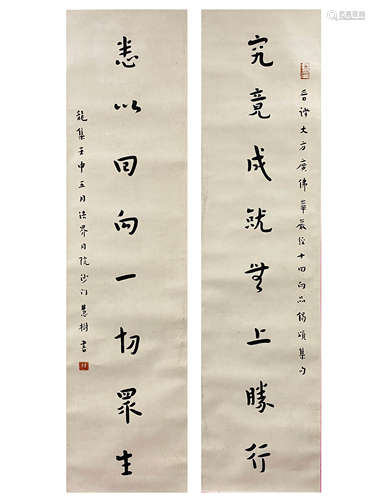 晉譯大方廣佛華嚴經十回向品偈頌集句
究竟成就無上勝行
悉以回向一切眾生
龍集壬申五月法界月院沙門慧樹書